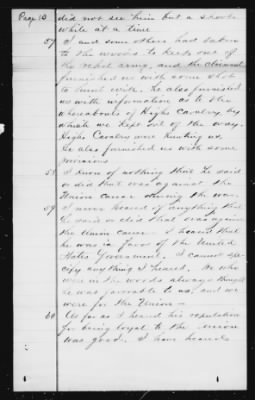 Page 10
did not see him but a short
while at a time
57 I and some others had taken
to the woods to keep out of
the rebel army, and the claimant
furnished us with some shot
to hunt with. he also furnished
us with information as to the
whereabouts of Highs Cavalry by
which we kept out of the way.
Highs Cavalry were hunting us.
He also furnished us with some
provisions
58 I know of nothing that he said
or did that was against the
Union cause during the war.
59 I never heard of anything that
he said or did that was against
the Union cause. I heard that
he was in favor of the United
States Government. I cannot spe-
cify any thing I heard. We who
were in the woods always thought
he was favorable to us, and we
were for the Union —
60 As far as I heard his reputation
for being loyal to the union
was good. I have heard